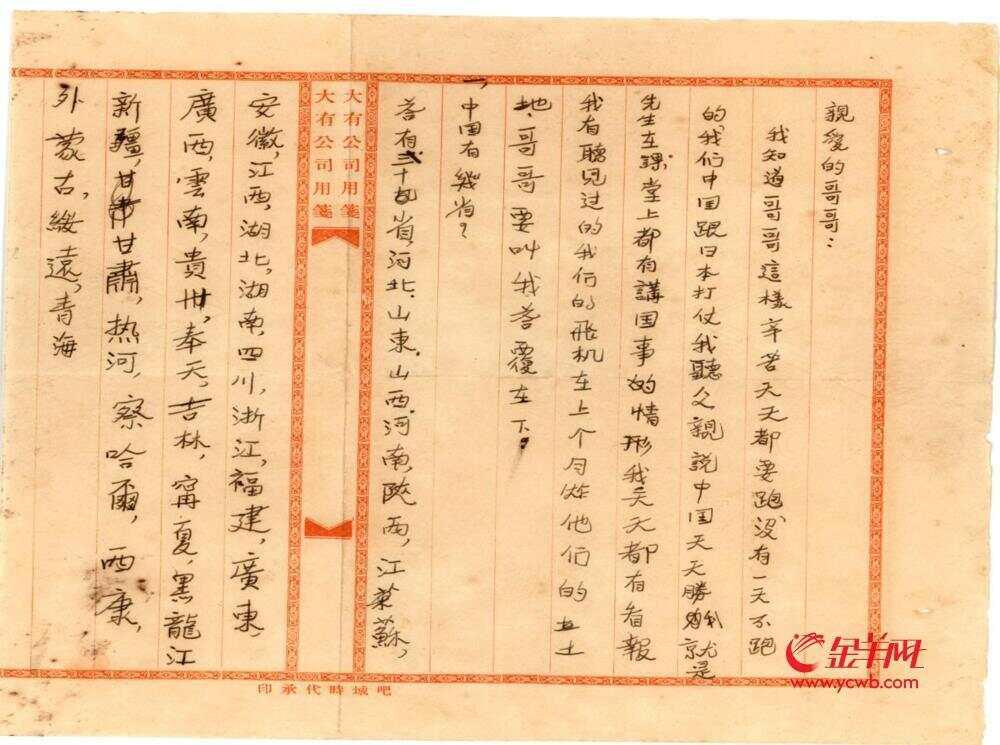 親爱的哥哥：
我知道哥哥這樣辛苦天天都要跑、没有一天不跑
的、我们中国跟日本打仗我聽父親説中国天天勝就是
先生在課堂上都有講国事的情形我天天都有看報
我有聽見过的我们的飛机在上个月炸他们的土
地、哥哥要叫我答覆在下。
一、中国有幾省？
答有二十八省，河北，山東，山西河南，陝西，江蘇，
大有公司用箋
大有公司用箋
安徽，江西，湖北，湖南四川，浙江，福建，廣東，
廣西，雲南，貴州，奉天，吉林，甯夏，黑龍江
新疆，甘肅，热河，察哈爾，西康，
外蒙古，綏遠，青海
吧城時代承印
金羊网
www.ycwb.com